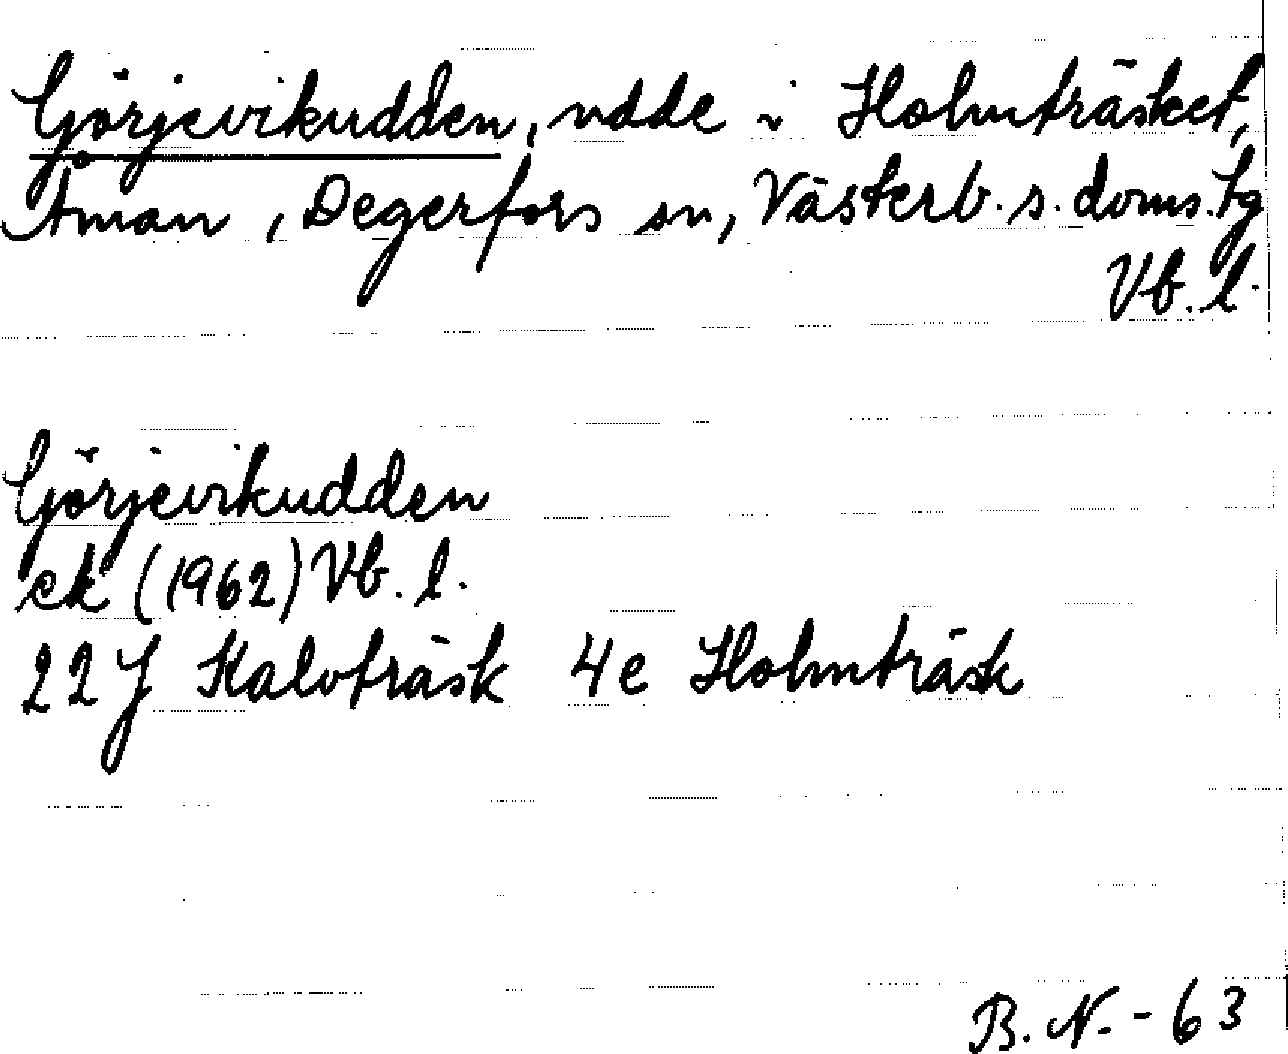 Görjevikudden, udde i Holmträsket,
Åman, Degerfors sn, Västerb. s. doms. tg
Vb. l.
Görjevikudden
ek (1962) Vb. l.
22J Kalvträsk 4e Holmträsk
B. N. - 63